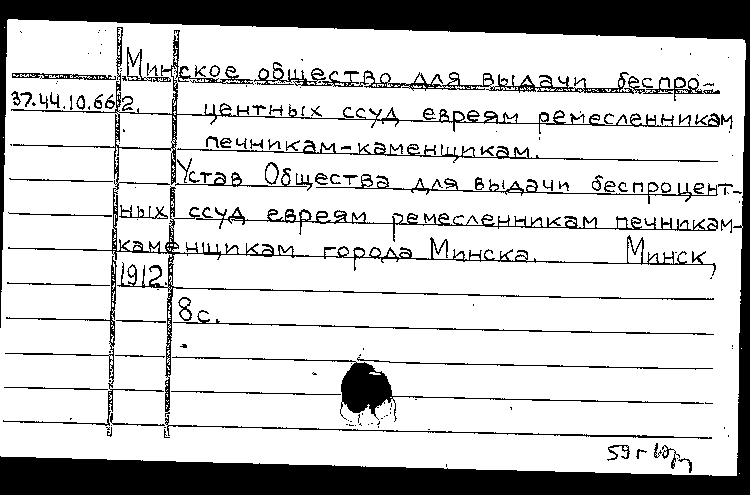 Минское общество для выдачи беспро-
37.44.10.662. центных ссуд евреям ремесленникам
печникам-каменщикам.
Устав Общества для выдачи беспроцент-
ных ссуд евреям ремесленникам печникам-
каменщикам города Минска. Минск,
1912.
8с.
59 г